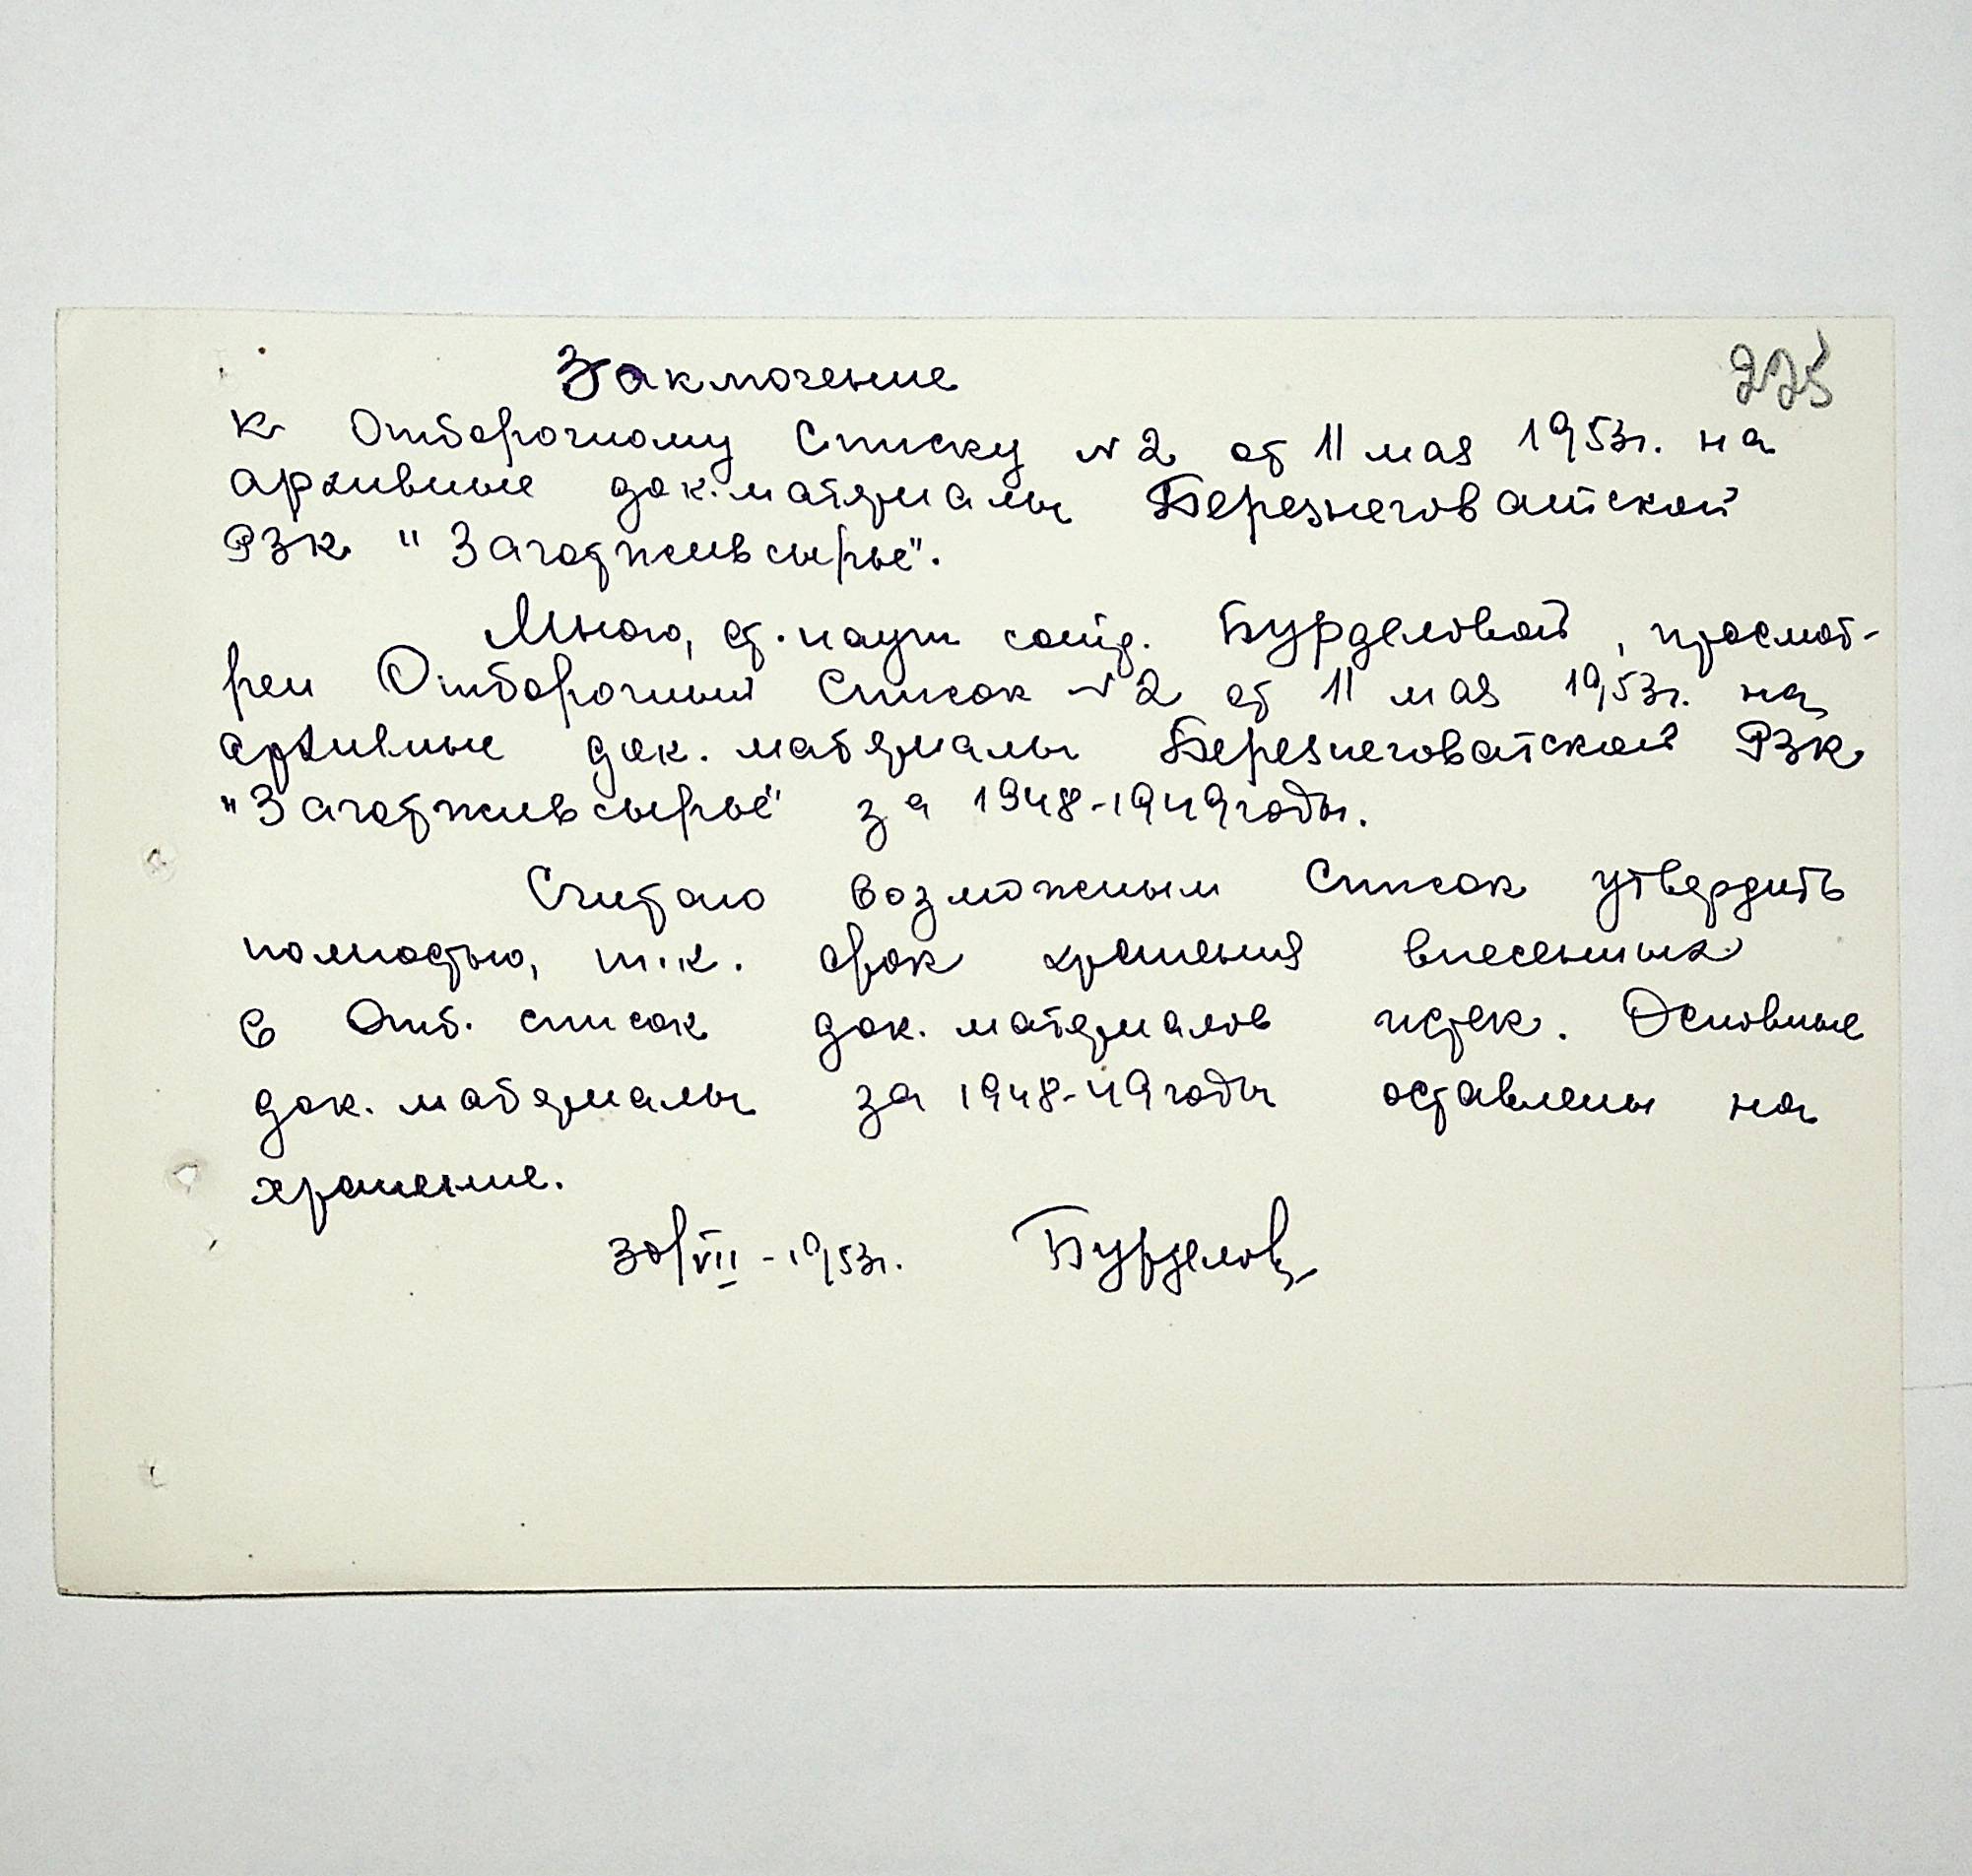 225
Заключение
к Отборочному Списку №2 от 11 мая 1953г. на
архивные док. материалы Березнеговатской
РЗК "Заготживсырье".
Мною, ст. науч сотр. Бурделовой, просмот-
рен Отборочный Список №2 от 11 мая 1953г. на
архивные док. материалы Березнеговатской РЗК
"Заготживсырье" за 1948-1949 годы.
Считаю возможным Список утвердить
полностью, т.к. срок хранения внесенных
в Отб. список док. материалов истек. Основные
док. материалы за 1948-49 годы оставлены на
хранение.
30/VII - 1953г. Бурделов